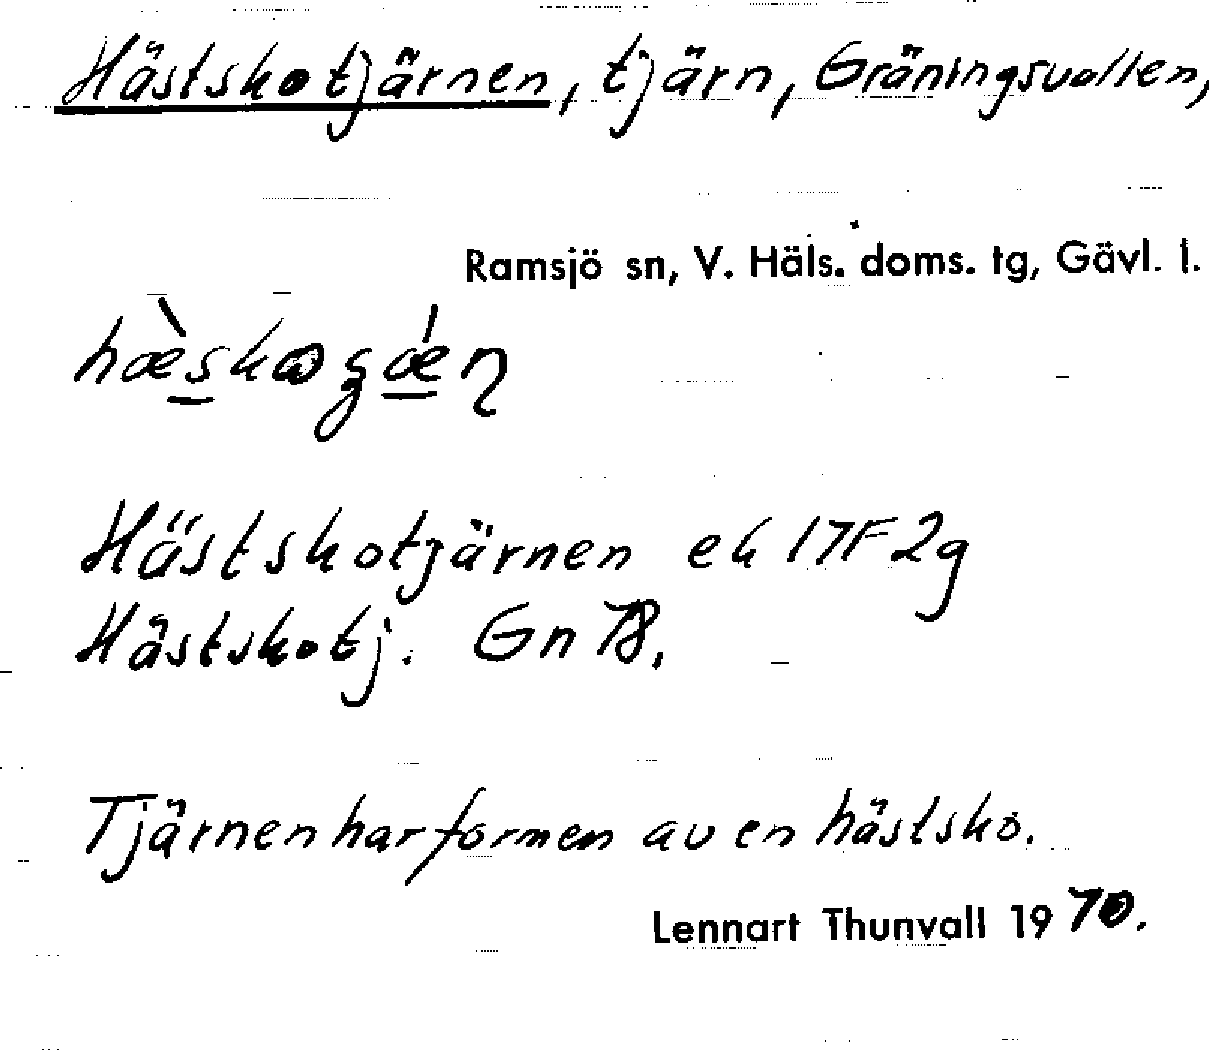 Hästskotjärnen, tjärn, Gräningsvallen,
Ramsjö sn, V. Häls. doms. tg, Gävl. l.
Hästskotjärnen ek 17F2g
Hästskotj. Gn 78.
Tjärnen har formen av en hästsko.
Lennart Thunvall 1970.